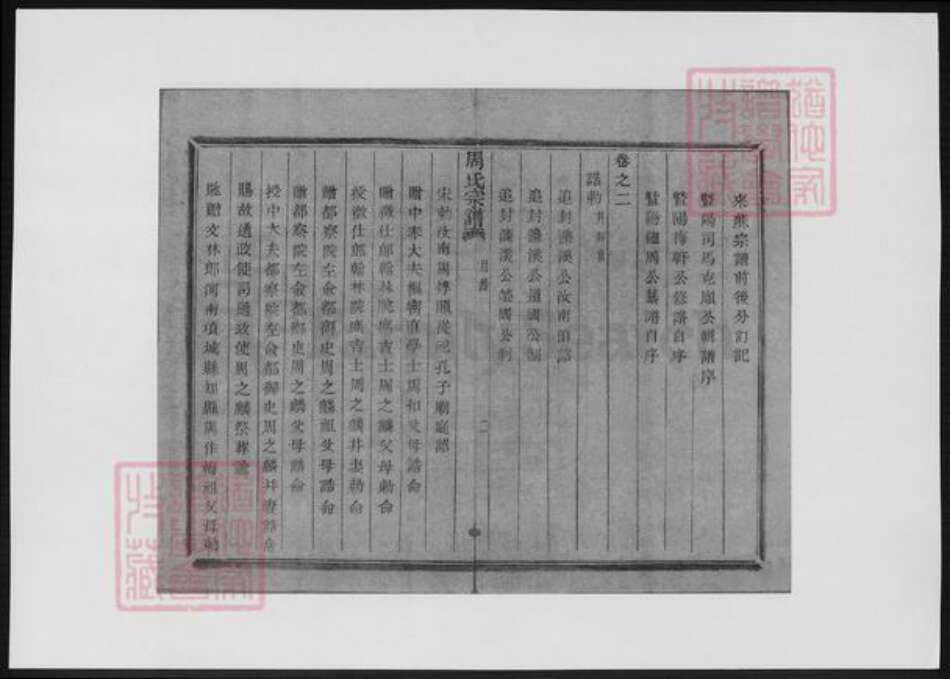 東熊宗譜前後分訂記
暨陽司馬克順公朝譜序
暨陽海軒公修譜自序
暨 周公纂譜自序
卷之二
誥勅
追封濂溪公汝南伯誥
追封濂溪公道國公制
追封濂溪公 國公制
宋勅汝南周惇頤從祀孔子廟庭詔
贈中奉大夫樞密直學士周 父母誥命
贈徵仕郎翰林院庶吉士周之麟父母勅命
授徵仕郎翰林院庶吉士周之麟并妻勅命
贈都察院左僉都御史周之麟祖父母誥命
贈都察院左僉都御史周之麟父母誥命
授中大夫都察院左僉都御史周之麟并妻誥命
賜故通政使司通政使周之麟祭葬
貤贈文林郎河南項城縣知縣周作 祖父母勅
周氏宗譜
目錄
二